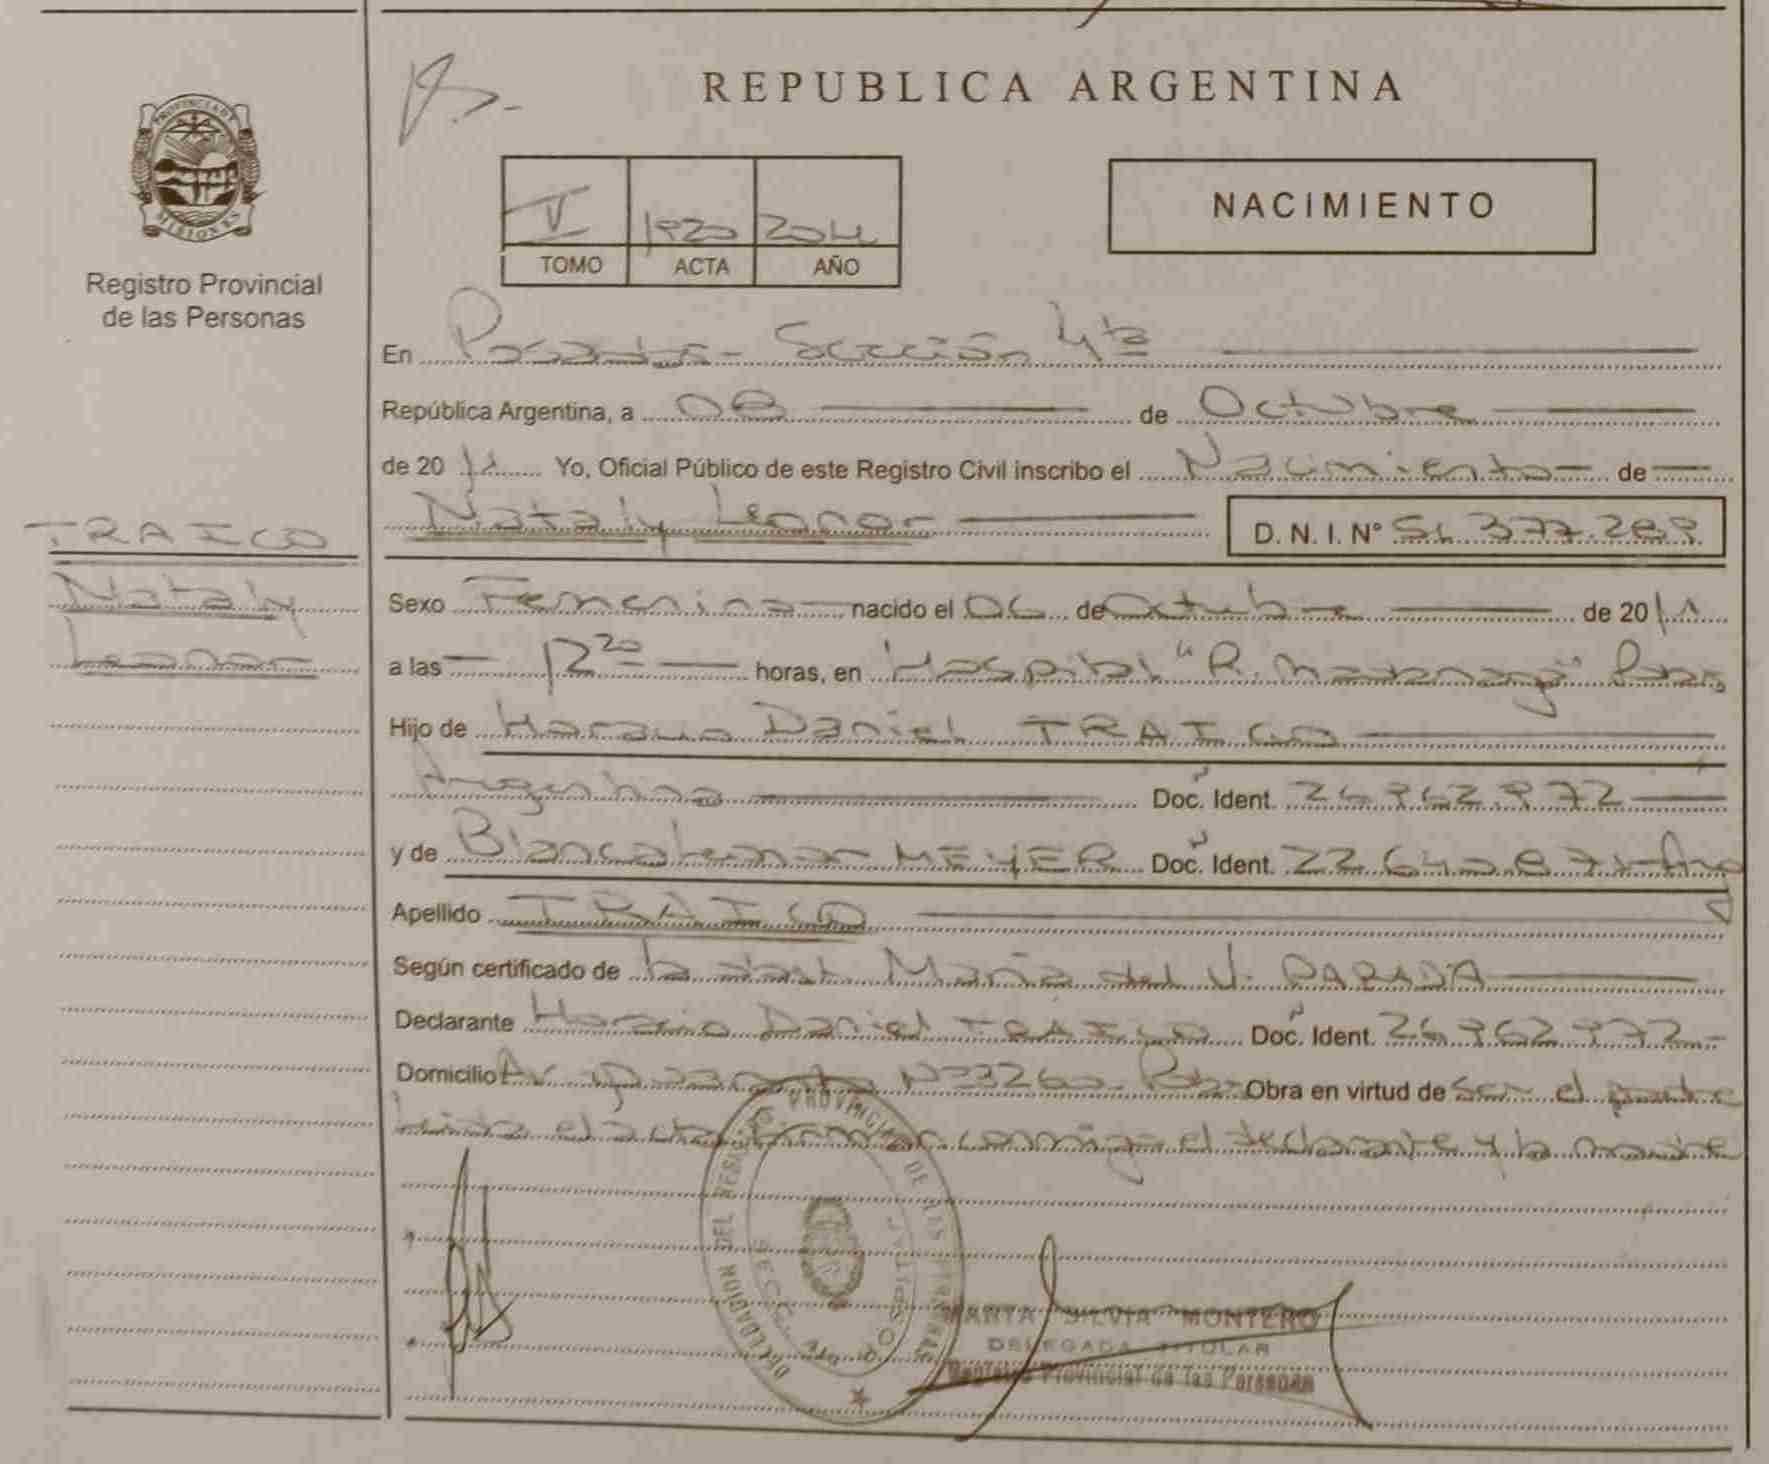 REPUBLICA ARGENTINA
PROVINCIA DE
MISIONES
Registro Provincial
de las Personas
V 1920
TOMO ACTA AÑO
NACIMIENTO
En Posadas - Sección 4ta
República Argentina, a 08 de Octubre
de 2011 Yo, Oficial Público de este Registro Civil inscribo el Nacimiento de
Nataly Leonor D. N. I. Nº 51.377.289
TRAICO
Nataly
Leonor
Sexo Femenino nacido el 06 de Octubre de 2011
a las 12 20 horas, en Hospital "R. Madariaga" Pdas
Hijo de Horacio Daniel TRAICO
Argentino Doc. Ident. 26.962.972
y de Blanca Leonor MEYER Doc. Ident. 22.640.871 - Arg
Apellido TRAICO
Según certificado de la obst. María del V.
Declarante Horacio Daniel TRAICO Doc. Ident. 26.962.972 -
Domicilio Av. Nº 3260 - Pdas Obra en virtud de ser el padre
Leída el acta firman conmigo el declarante y la madre
DELEGACION DEL REGISTRO PROVINCIAL DE LAS PERSONAS
MARTA SILVIA MONTERO
DELEGADA TITULAR
Registro Provincial de las Personas